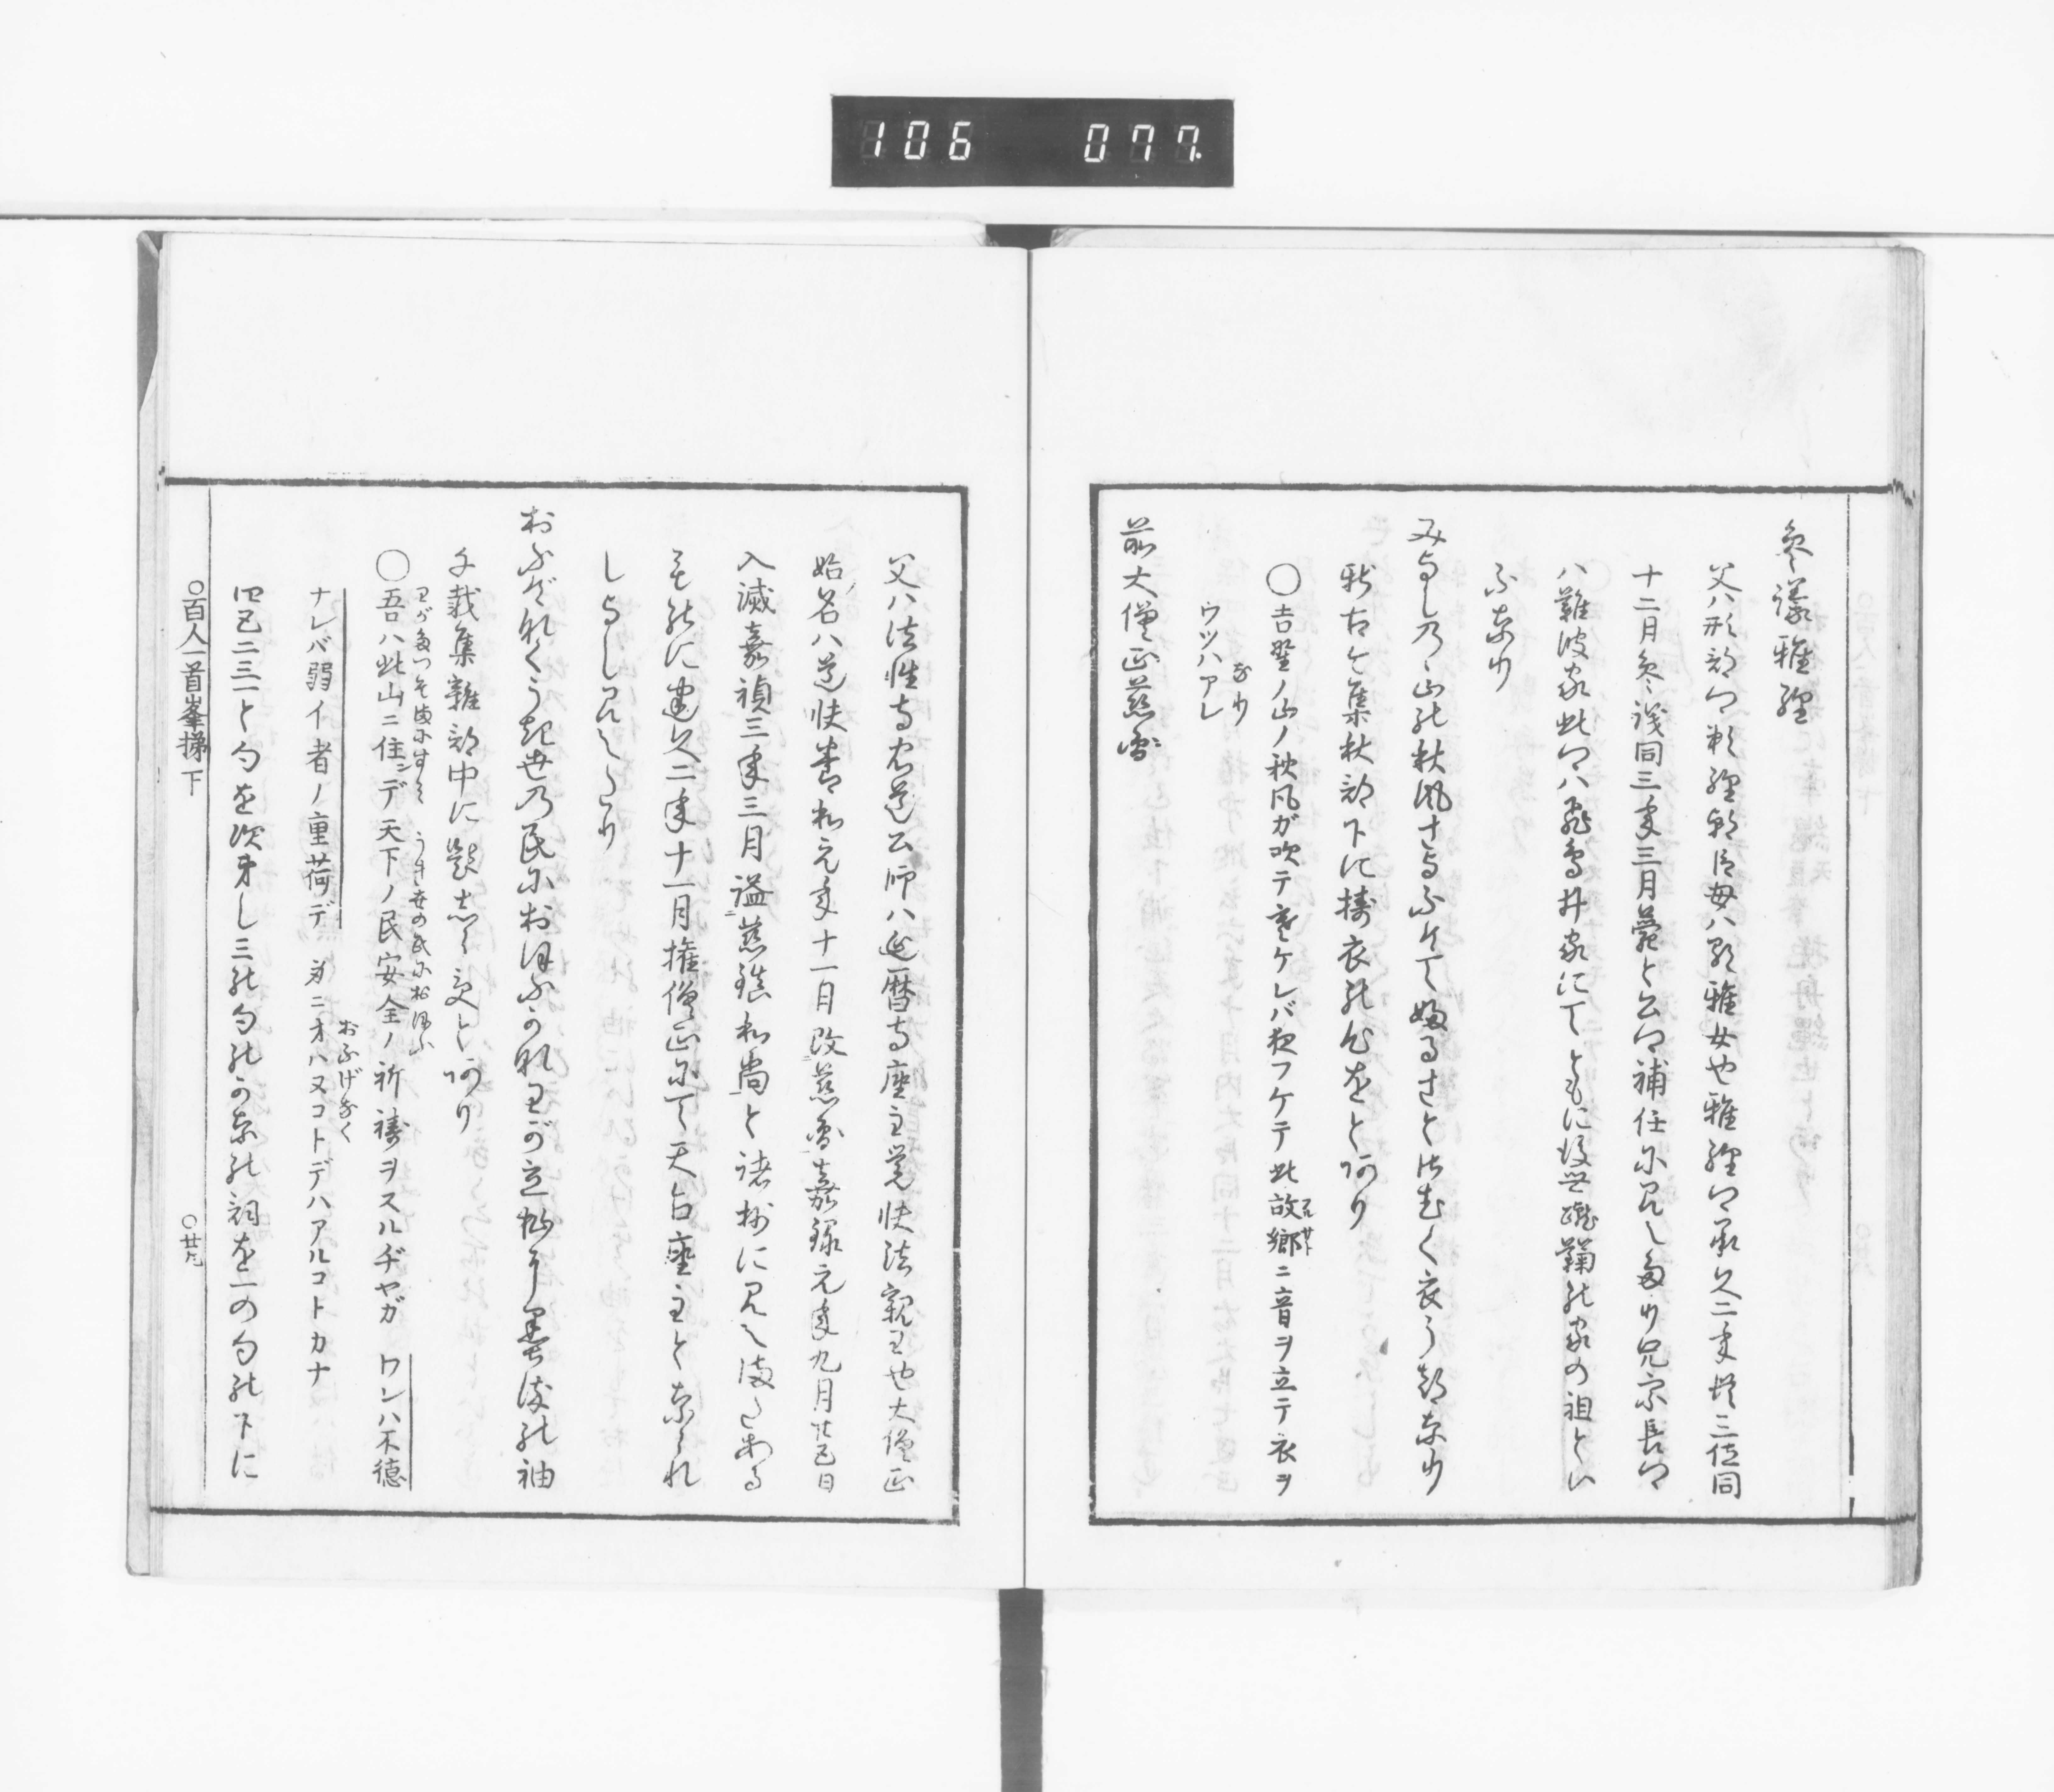 106 077.
参議雅経
父ハ形部卿頼経朝臣母ハ顕雅女也雅経卿承久二年従三位同
十二月参議同三年三月薨と公卿補任に見えたり兄宗長卿
ハ難波家此卿ハ飛鳥井家にてともに後世蹴鞠の家の祖とい
ふなり
みよしのゝ山の秋風さよふけて婦るさとさむく衣うつなり
新古今集秋部下に擣衣の心をとあり
○吉野ノ山ノ秋風ガ吹テ寒ケレバ夜フケテ此故郷ニ音ヲ立テ衣ヲ
ウツハアレ
なり
前大僧正慈圓
父ハ法性寺忠通公師ハ延暦寺座主覚快法親王也大僧正
始ノ名ハ道快養和元年十一月改慈圓嘉禄元年九月廿五日
入滅嘉禎三年三月謚慈鎮和尚と諸抄に見えたる
建久二年十一月権僧正にて天台座主となられ
しよし見えたり
おふけなくうき世の民におほふかなわが立杣に墨染の袖
千載集雑部中に題しらずとあり
わがたつそまにすみ うき世の民におほふ
○吾ハ此山ニ住ンデ天下ノ民安全ノ祈祷ヲスルヂヤガ ワシハ不徳
おふけなく
ナレバ弱イ者ノ重荷デ 身ニオハヌコトデハアルコトカナ
四五二三一と句を次第し三の句のかなの詞を一の句の下に
○百人一首峯梯下
○廿九